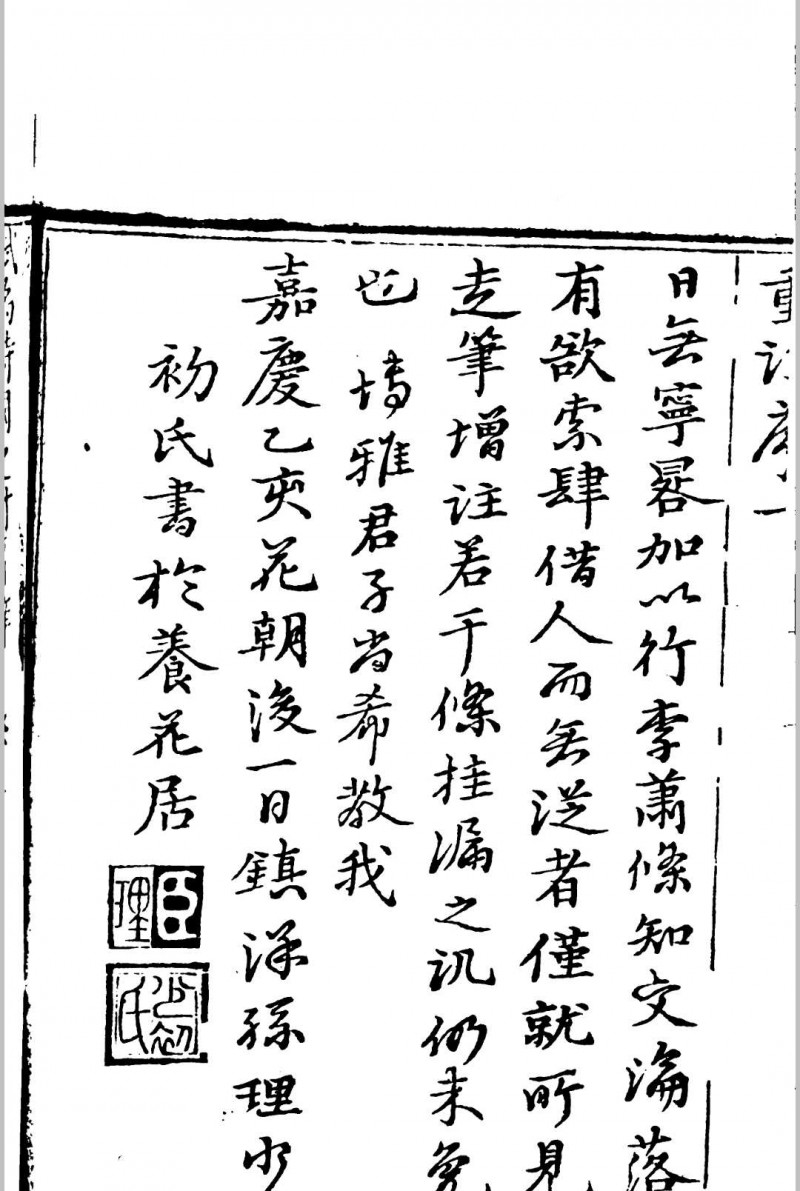 重訂序一
日無寧晷加以行李蕭條知交淪落
有欲索肆借人而無從者僅就所見
走筆增註若干條挂漏之譏仍未免
也 博雅君子尚希教我
嘉慶乙亥花朝後一日鎮洋孫理少
初氏書於養花居
臣理
少初氏